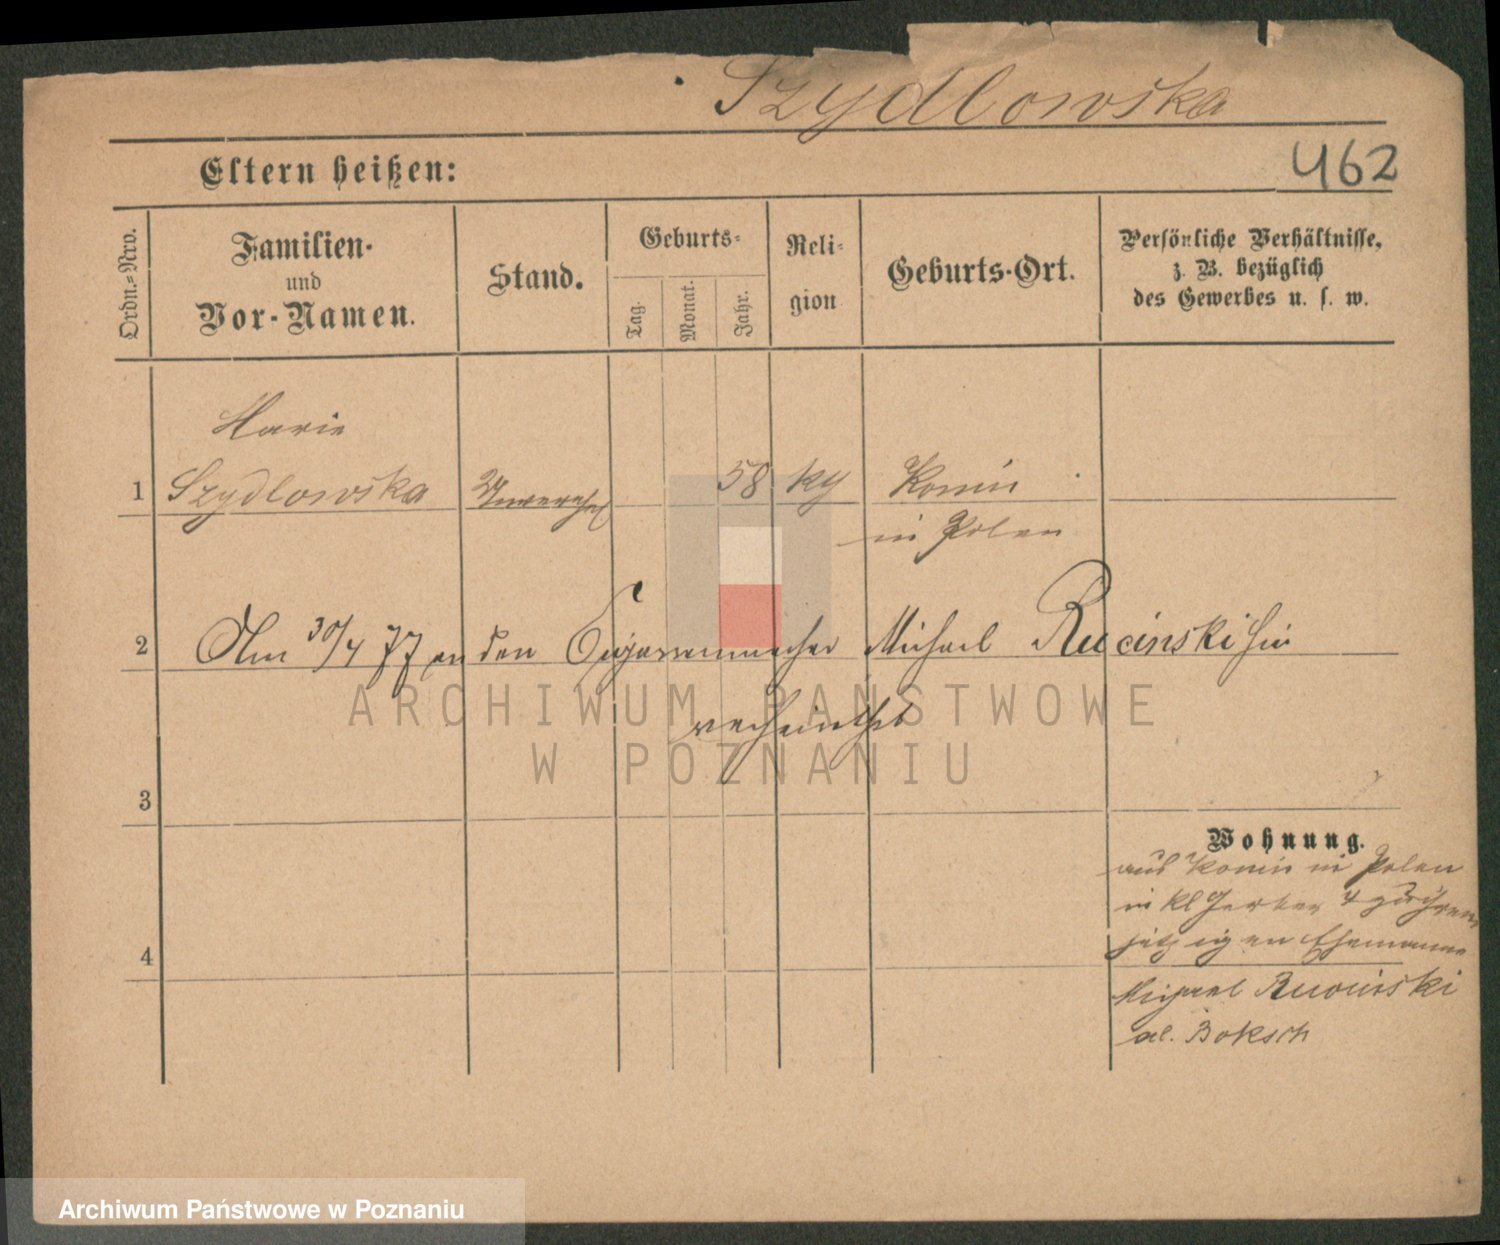 Szydlowska
462
Eltern heißen:
Ordn.-Nro.
Familien- und Vor-Namen.
Stand.
Geburts-
Tag.
Monat.
Jahr.
Reli-
gion
Geburts-Ort.
Persönliche Verhältnisse,
z. B. bezüglich
des Gewerbes u. s. w.
Marie
1 Szydlowska Unvereh. 58 kg Konin
in Polen
2 Am 30/4 77 an den Cigarrenmacher Michael Rucinski hier
verheirathet
ARCHIWUM PAŃSTWOWE
W POZNANIU
3
Wohnung.
aus Konin in Polen
in kl Gerber 4 zu ihrem
4 jetzigen Ehemanne
Michael Rucinski
al. Boksch
Archiwum Państwowe w Poznaniu